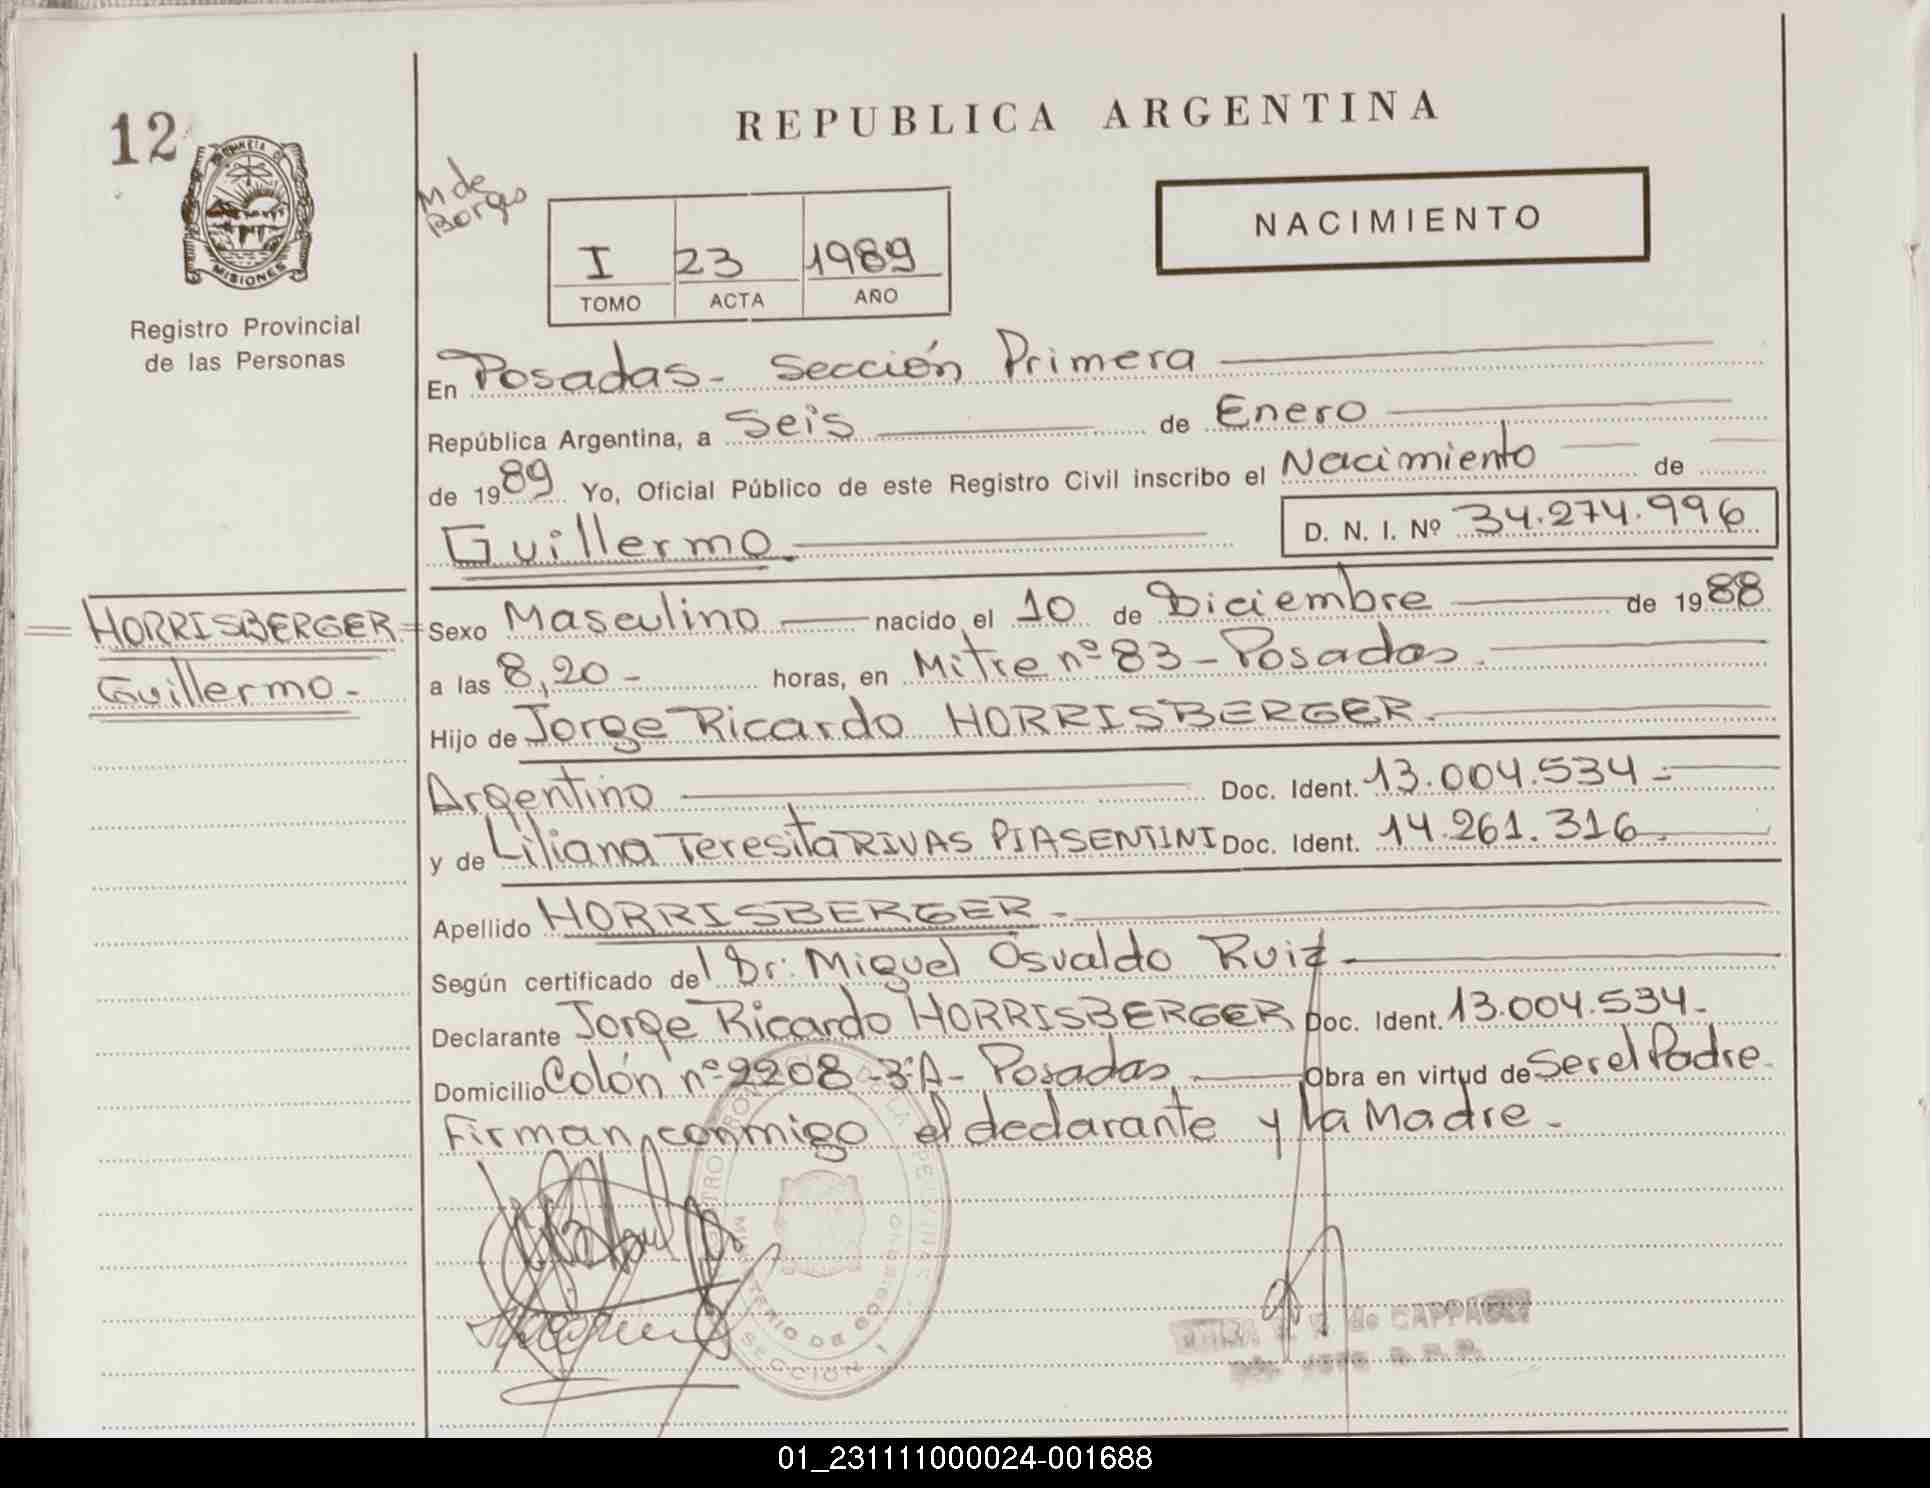 12
REPUBLICA ARGENTINA
M de
Borges
MISIONES
Registro Provincial
de las Personas
I 23 1989
TOMO ACTA AÑO
NACIMIENTO
En Posadas - Sección Primera
República Argentina, a Seis de Enero
de 1989 Yo, Oficial Público de este Registro Civil inscribo el Nacimiento de
Guillermo. D. N. I. Nº 34.274.996
= HORRISBERGER =
Guillermo -
Sexo Masculino nacido el 10 de Diciembre de 1988
a las 8,20 - horas, en Mitre nº 83 - Posadas.
Hijo de Jorge Ricardo HORRISBERGER.
Argentino Doc. Ident. 13.004.534 =
y de Liliana Teresita RIVAS PIASENTINI Doc. Ident. 14.261.316.
Apellido HORRISBERGER -
Según certificado del Dr: Miguel Osvaldo Ruiz -
Declarante Jorge Ricardo HORRISBERGER Doc. Ident. 13.004.534 -
Domicilio Colón nº 2208 - 3º A - Posadas Obra en virtud de Ser el Padre -
Firman conmigo el declarante y la Madre -
MINISTERIO DE GOBIERNO
SECCION 1
de CAPPAGLI
01_231111000024-001688